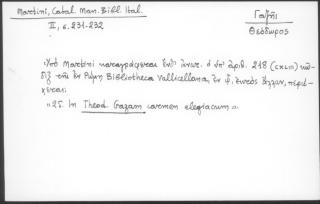 Martini, Catal. Man. Bibl. Ital.
II, σ. 231-232
Γαζῆς
Θεόδωρος
Ὑπὸ Martini καταγράφεται ὑπ' ἀριθ. 218 (CXLIII) κῶ-
διξ τῆς ἐν Ρώμῃ Bibliotheca Vallicellana, ἐν ᾧ, ἐκτὸς ἄλλων, περιέ-
χεται:
"25. In Theod. Gazam carmen elegiacum".